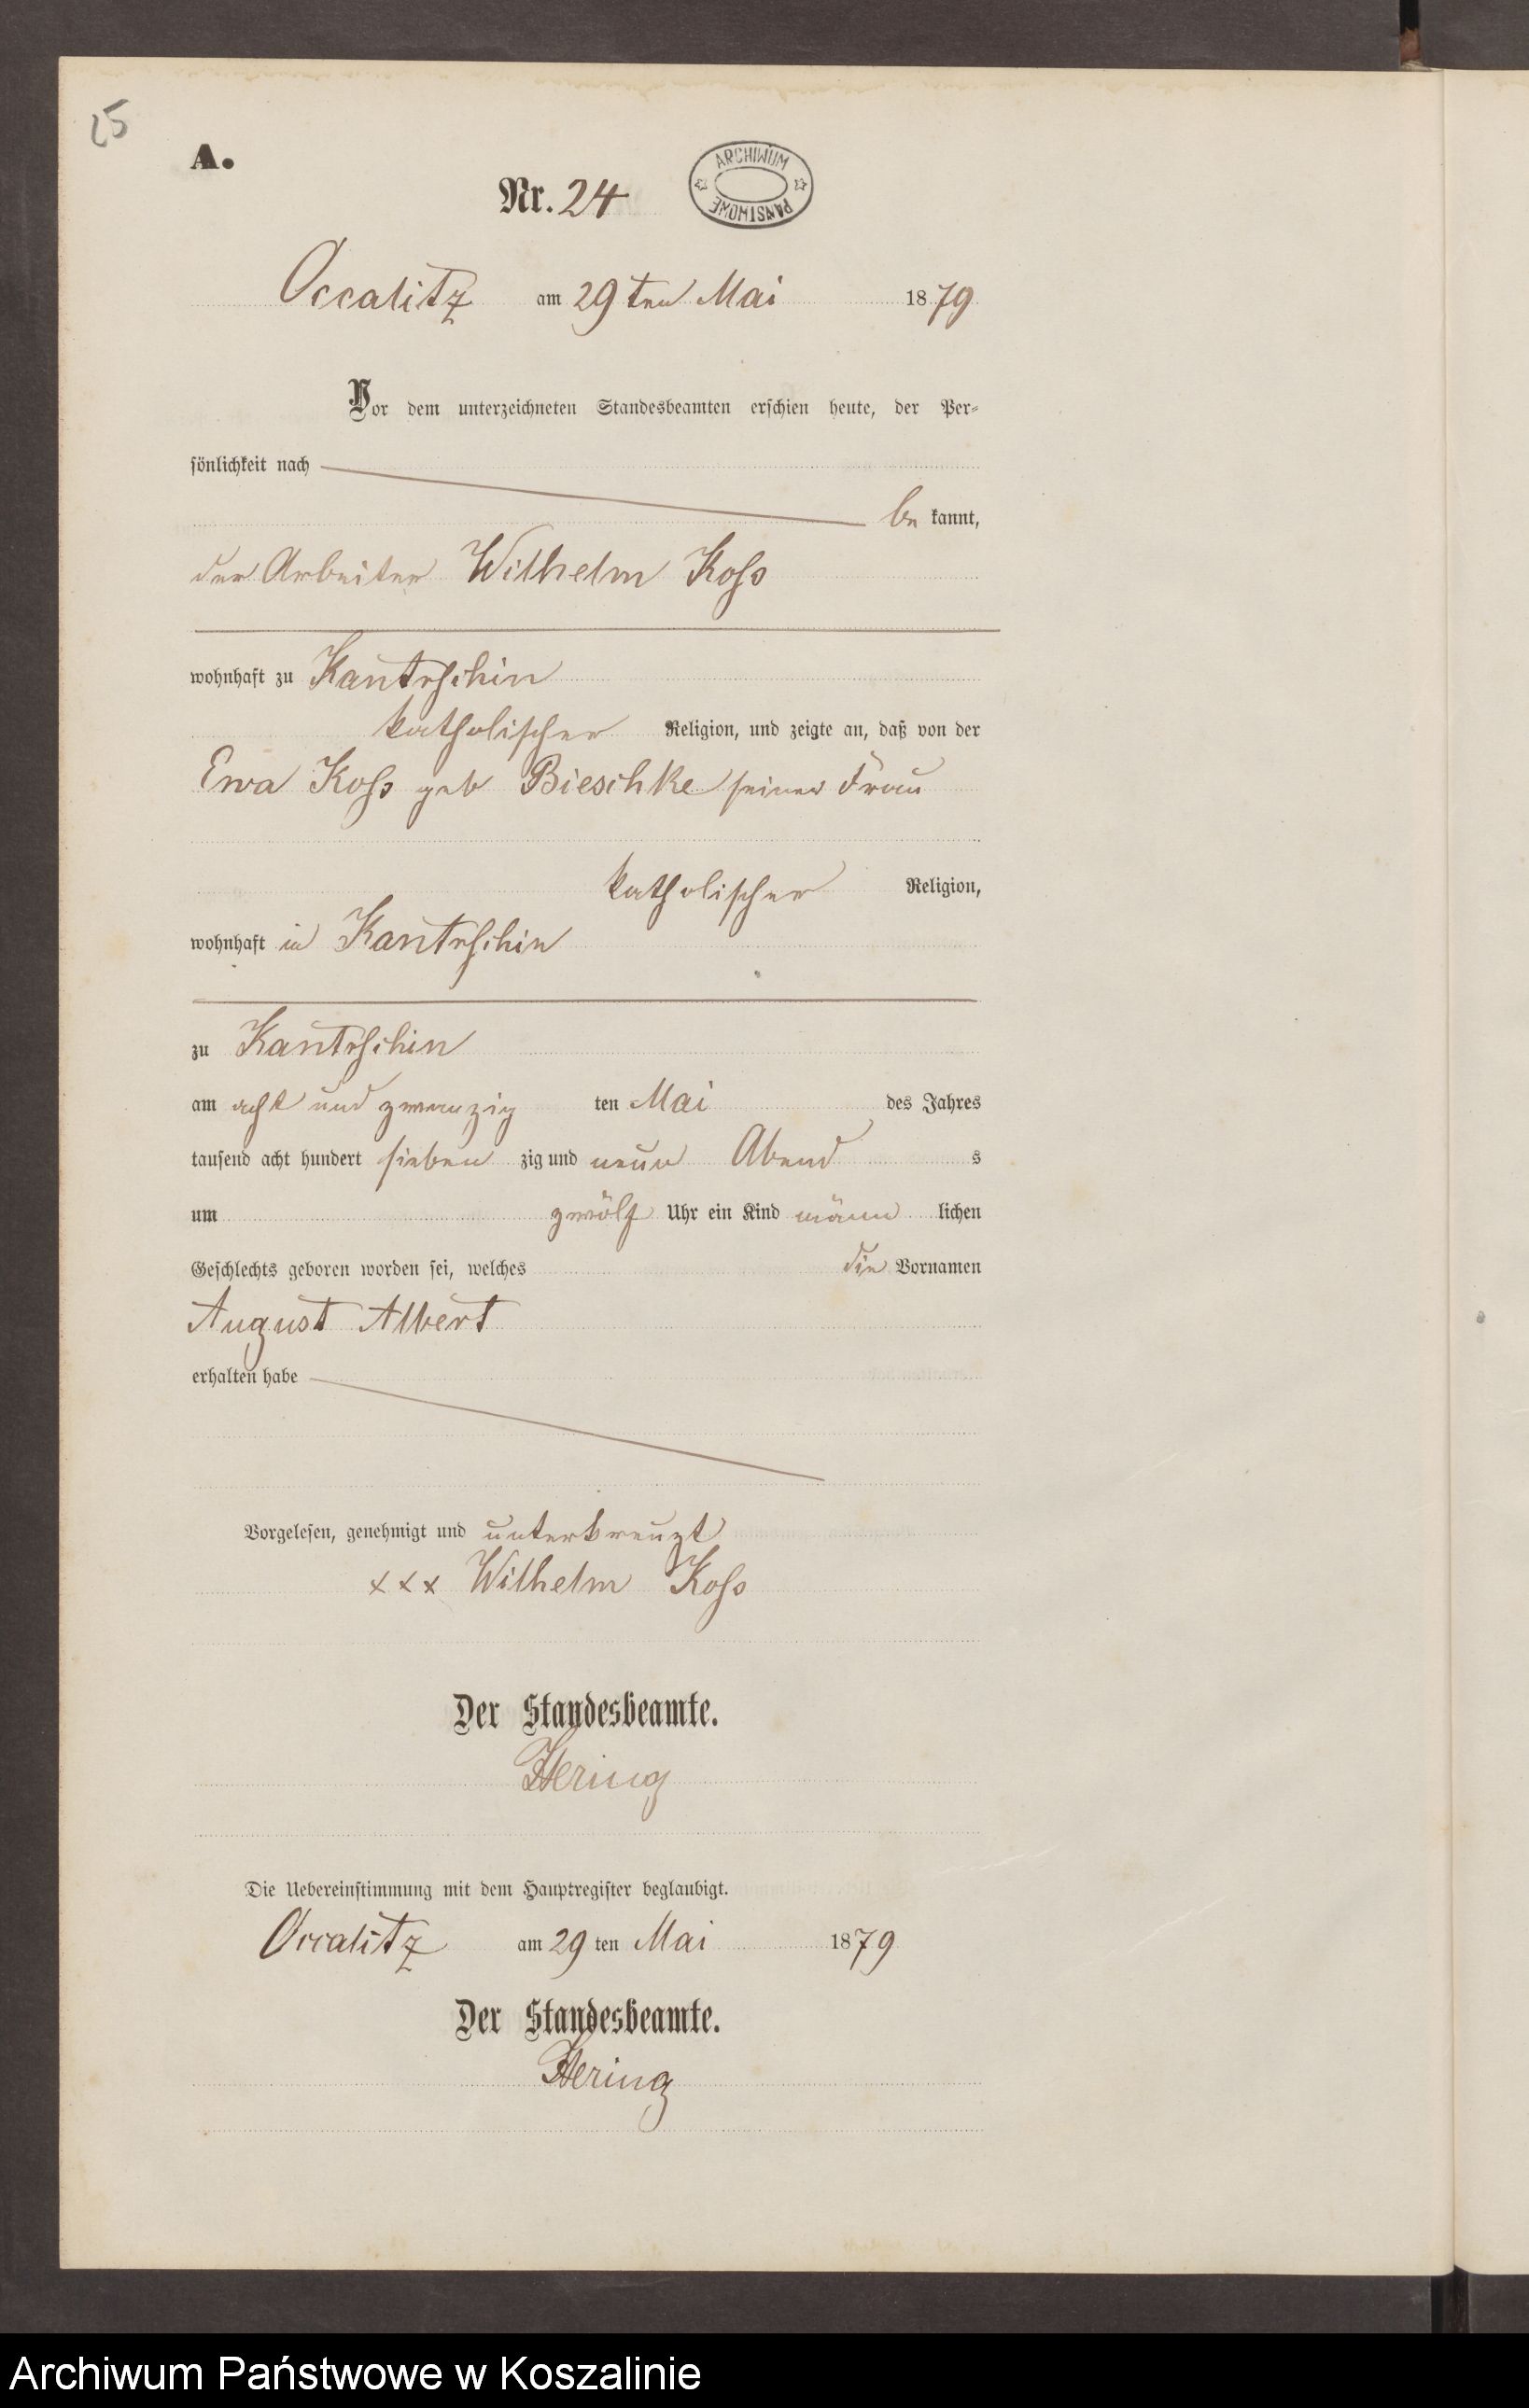 25
A.
Nr. 24
ARCHIWUM PAŃSTWOWE
Occalitz am 29ten Mai 1879
Vor dem unterzeichneten Standesbeamten erschien heute, der Per-
sönlichkeit nach
be kannt,
der Arbeiter Wilhelm Koss
wohnhaft zu Kantrschin
katholischer Religion, und zeigte an, daß von der
Ewa Koss geb Bieschke seiner Frau
katholischer Religion,
wohnhaft in Kantrschin
zu Kantrschin
am acht und zwanzig ten Mai des Jahres
tausend acht hundert sieben zig und neun Abend s
um zwölf Uhr ein Kind männ lichen
Geschlechts geboren worden sei, welches die Vornamen
August Albert
erhalten habe
Vorgelesen, genehmigt und unterkreuzt
xxx Wilhelm Koss
Der Standesbeamte.
Hering
Die Uebereinstimmung mit dem Hauptregister beglaubigt.
Occalitz am 29 ten Mai 1879
Der Standesbeamte.
Hering
Archiwum Państwowe w Koszalinie